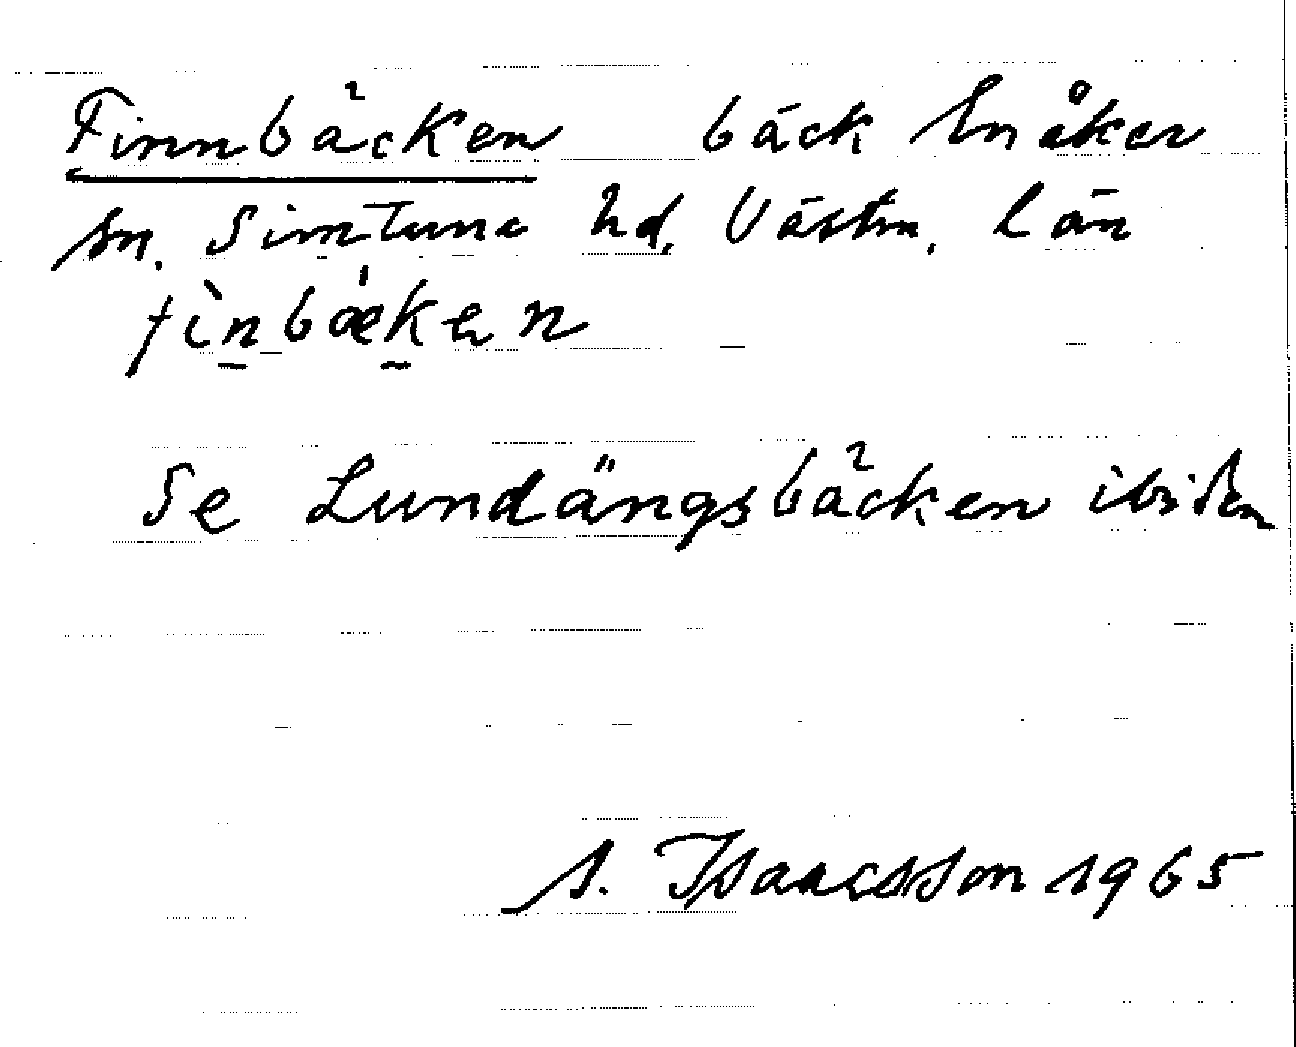 Finnbäcken bäck Enåker
sn. Simtuna hd, Västm. län
fìnbæken
Se Lundängsbäcken ibidem
S. Isaacsson 1965